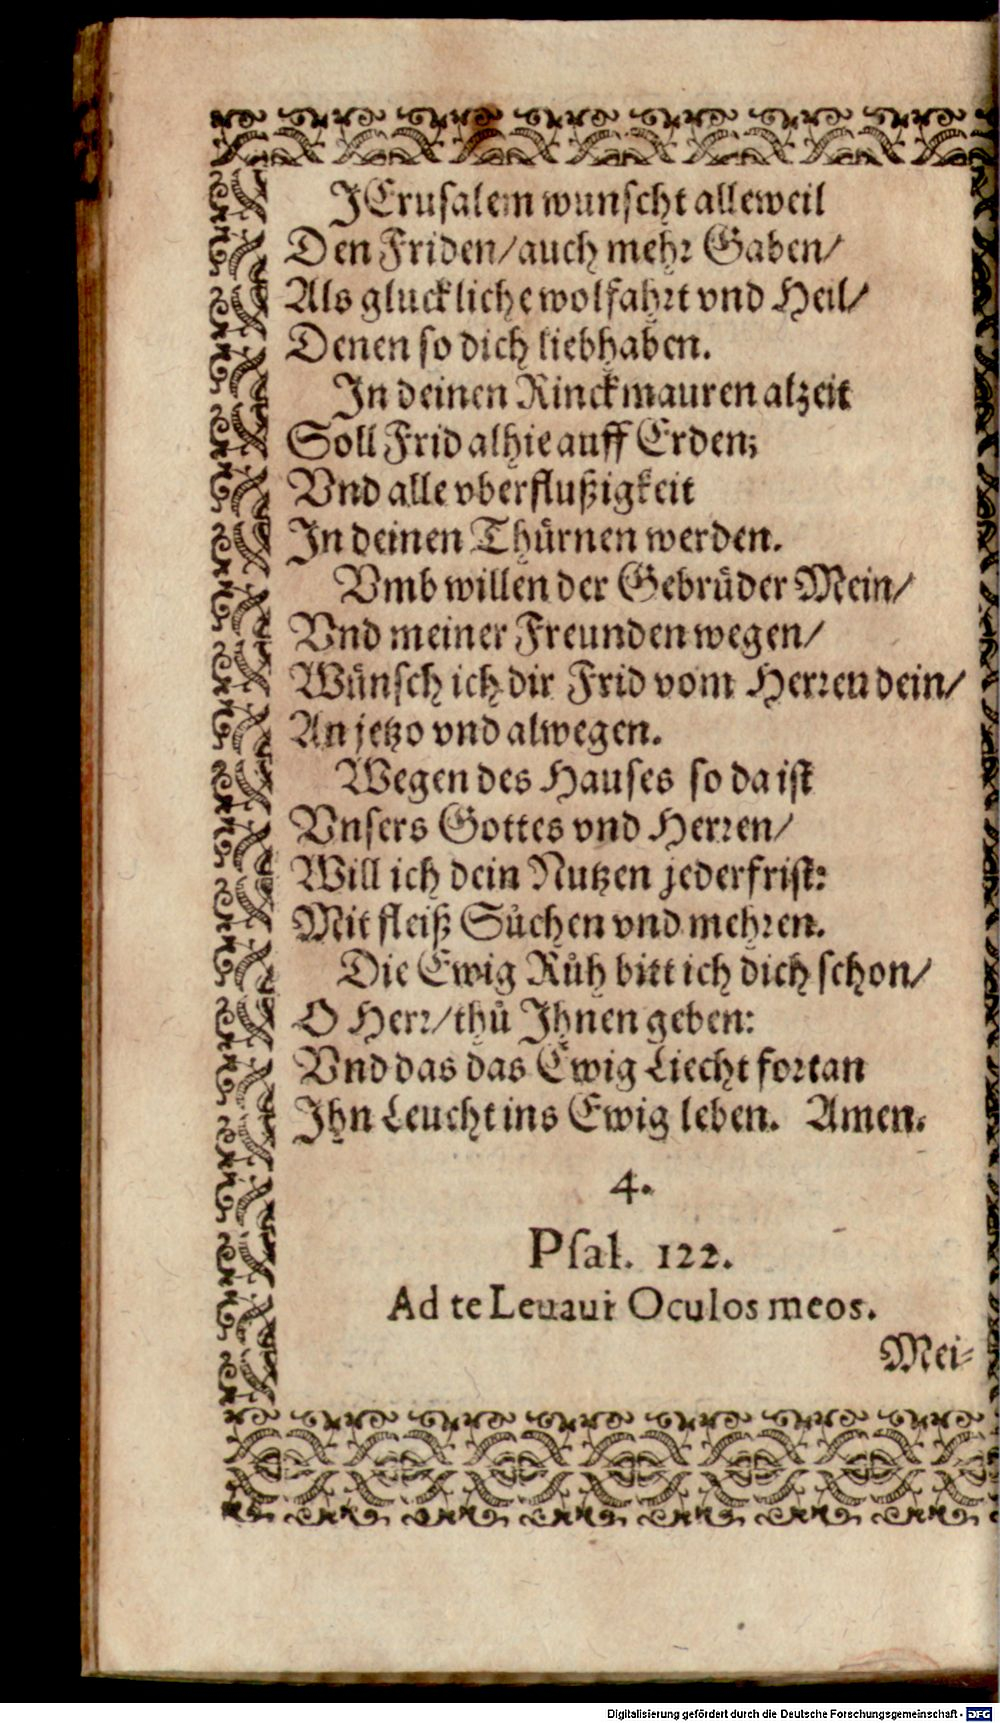 JErusalem wunscht alleweil
Den Friden/ auch mehr Gaben/
Als gluckliche wolfahrt vnd Heil/
Denen so dich liebhaben.
In deinen Rinckmauren alzeit
Soll Frid alhie auff Erden;
Vnd alle vberflußigkeit
In deinen Thürnen werden.
Vmb willen der Gebrüder Mein/
Vnd meiner Freunden wegen/
Wünsch ich dir Frid vom Herren dein/
An jetzo vnd alwegen.
Wegen des Hauses so da ist
Vnsers Gottes vnd Herren/
Will ich dein Nutzen jederfrist:
Mit fleiß Sůchen vnd mehren.
Die Ewig Růh bitt ich dich schon/
O Herr/ thů Ihnen geben:
Vnd das das Ewig Liecht fortan
Ihn Leucht ins Ewig leben. Amen.
4.
Psal. 122.
Ad te Leuaui Oculos meos.
Mei-
Digitalisierung gefördert durch die Deutsche Forschungsgemeinschaft - DFG